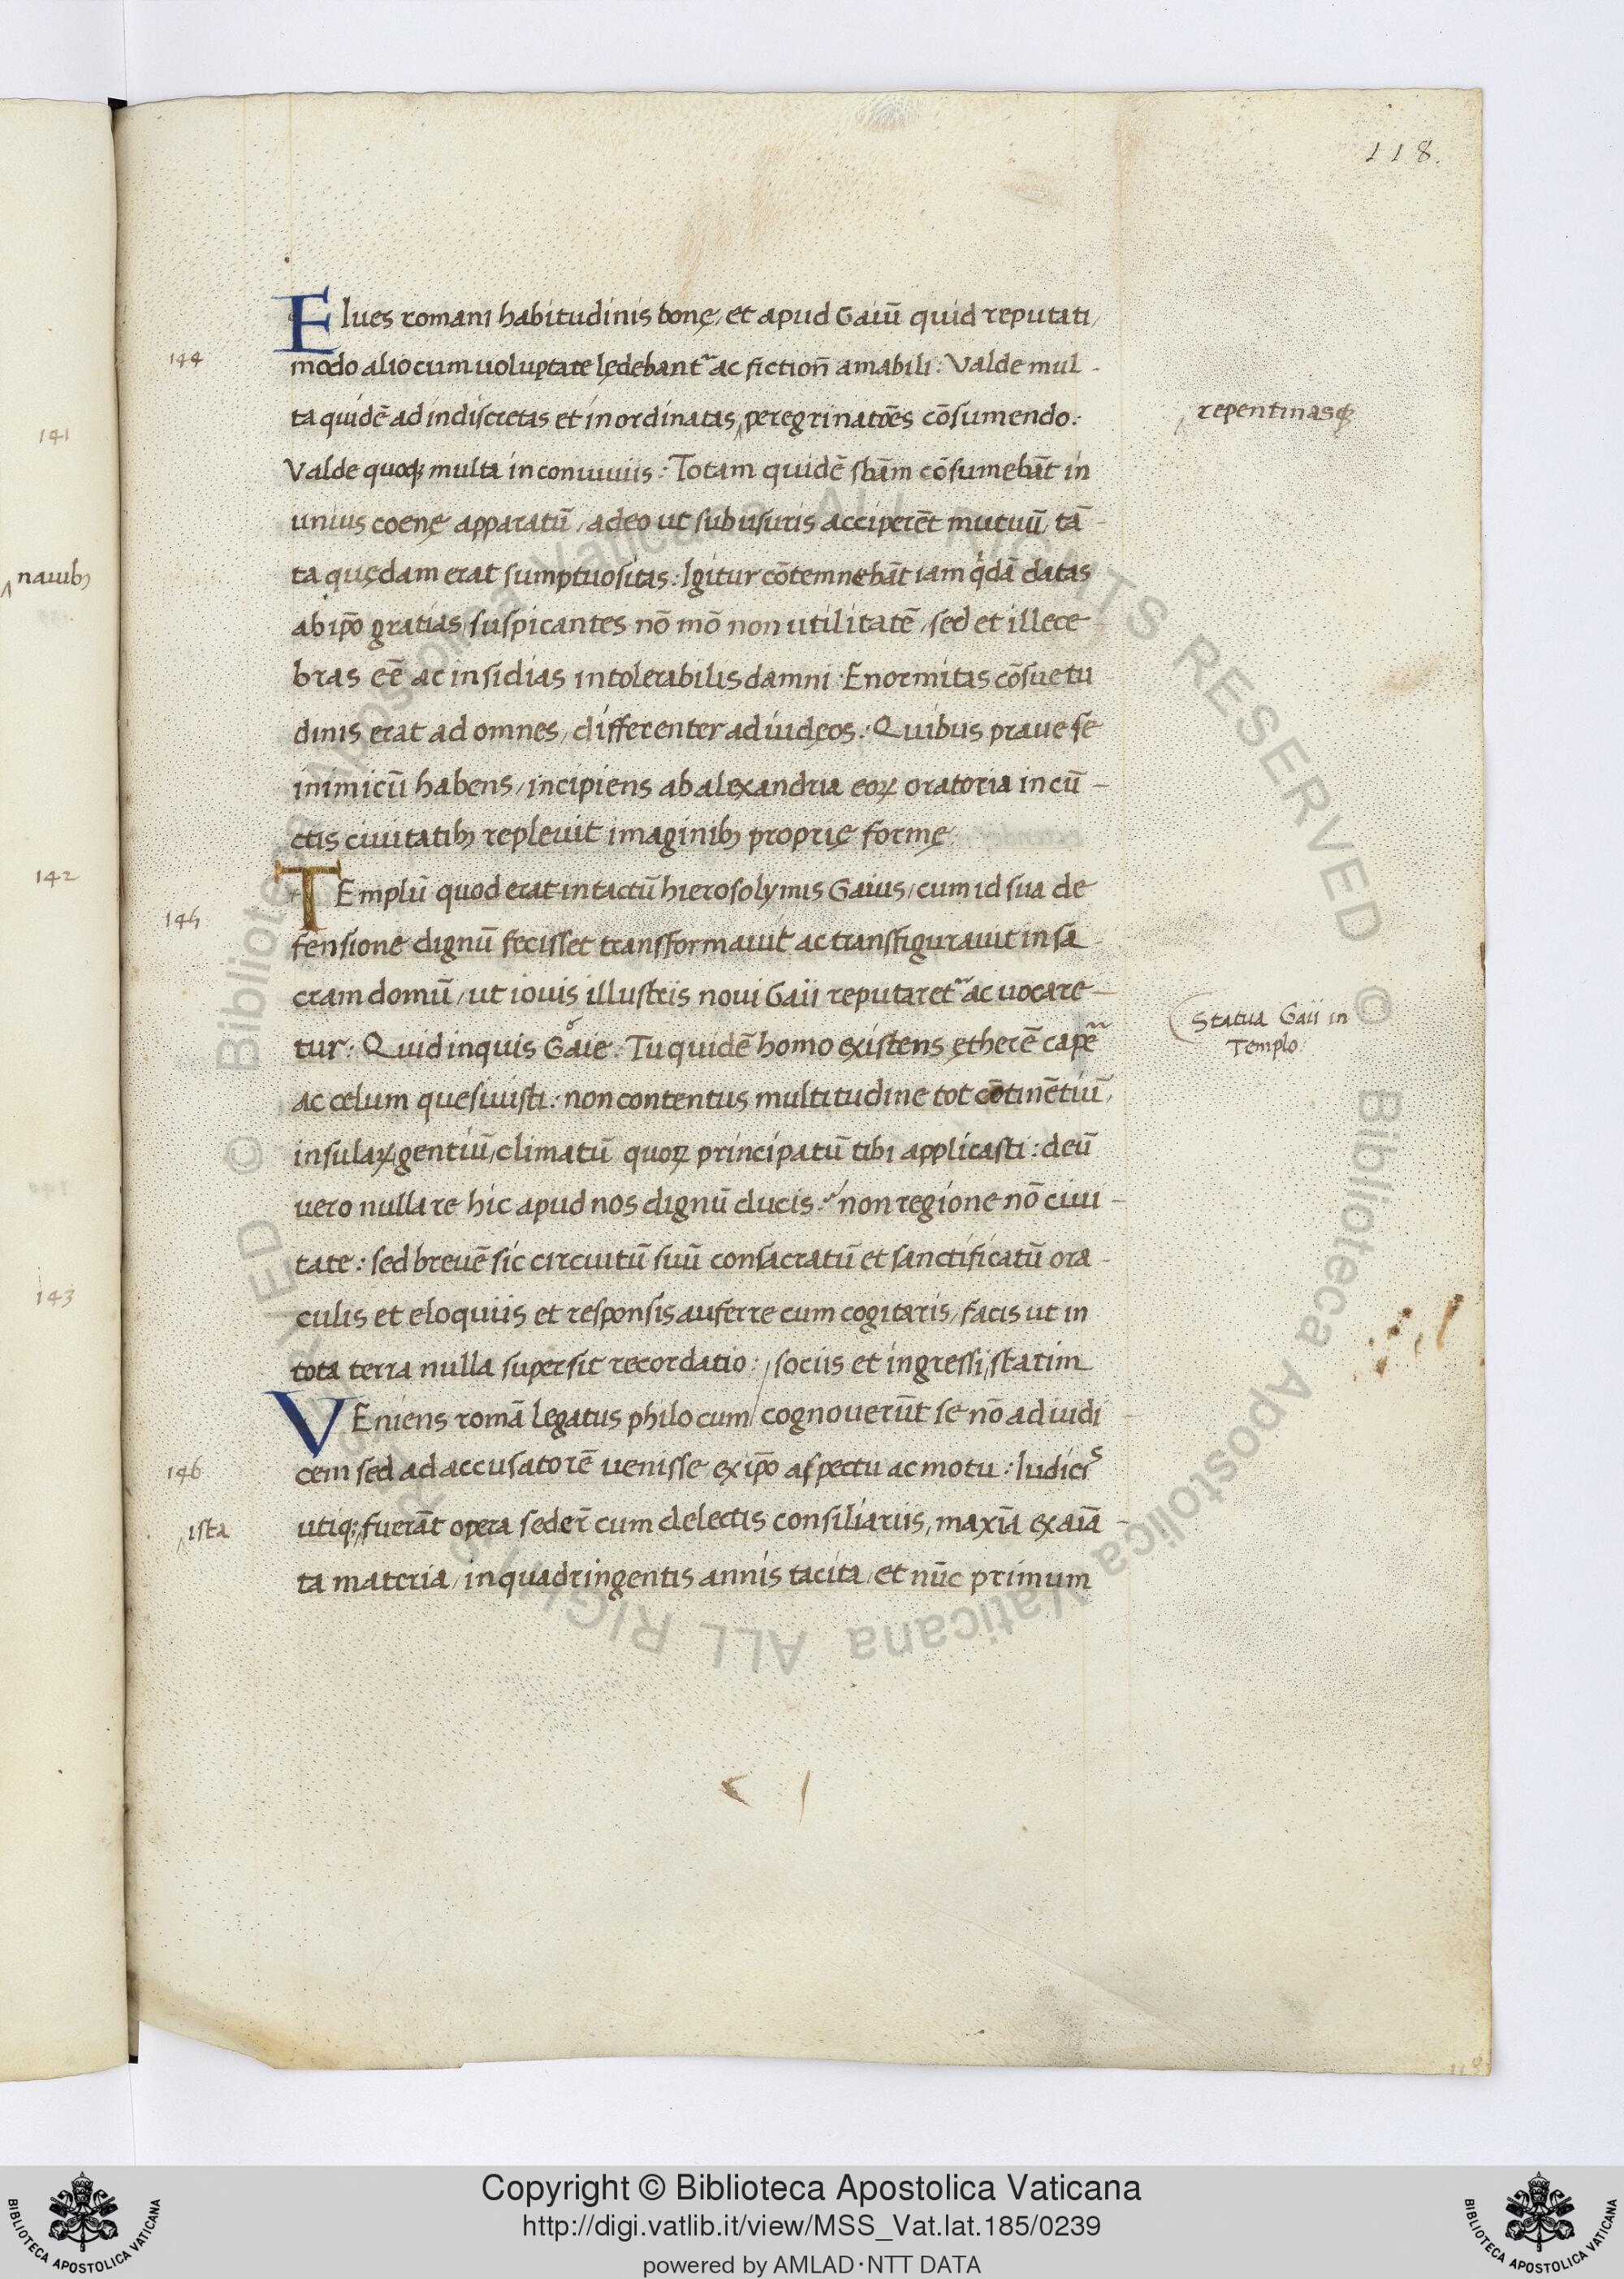 118.
Elues romani habitudinis bonę, et apud Gaiū quid reputati,
144
modo alio cum uoluptate lędebant᷑ ac fiction̄ amabili: Valde mul-
ta quidē ad indiscretas et inordinatas, peregrinatiōes cōsumendo:
repentinasqꝫ
141
Valde quoqꝫ multa in conuiuiis: Totam quidē sbām cōsumebāt in
unius coenę apparatū, adeo ut sub usuris acciperēt mutuū, tā-
ta quędam erat sumptuositas: Igitur cōtemnebāt iam qͥdā datas
nauibꝫ
ab ip̄o gratias, suspicantes nō mō non utilitatē, sed et illece-
bras eē ac insidias intolerabilis damni: Enormitas cōsuetu
dinis erat ad omnes, differenter ad iudęos: Quibus praue se
inimicū habens, incipiens ab alexandria eoꝝ oratoria in cū-
ctis ciuitatibꝫ repleuit imaginibꝫ proprię formę
142
TEmplū quod erat intactū hierosolymis Gaius, cum id sua de-
145
fensione dignū fecisset transformauit ac transfigurauit in sa-
cram domū, ut iouis illustris noui Gaii reputaret᷑ ac uocare-
Statua Gaii in
Templo
tur: Quid inquis Gaie: Tu quidē homo existens ętherē cape᷑
ac celum quesiuisti: non contentus multitudine tot cōtinētiū,
insulaꝝ, gentiū, climatū quoꝝ principatū tibi applicasti: deū
uero nulla re hic apud nos dignū ducis: non regione nō ciui-
tate: sed breuē sic circuitū suū consacratū et sanctificatū ora-
143
culis et eloquiis et responsis auferre cum cogitaris, facis ut in
tota terra nulla supersit recordatio: sociis et ingressi, statim
VEniens romā legatus philo cum cognouerūt se nō ad iudi-
146
cem sed ad accusatorē uenisse ex ip̄o aspectu ac motu: Iudicis
ista
utiqꝫ fuerāt opera seder̄ cum delectis consiliariis, maxiā exaiā-
ta materia, in quadringentis annis tacita, et nūc primum
Copyright © Biblioteca Apostolica Vaticana
http://digi.vatlib.it/view/MSS_Vat.lat.185/0239
powered by AMLAD·NTT DATA
BIBLIOTECA APOSTOLICA VATICANA
BIBLIOTECA APOSTOLICA VATICANA
© Biblioteca Apostolica Vaticana ALL RIGHTS RESERVED
© Biblioteca Apostolica Vaticana ALL RIGHTS RESERVED